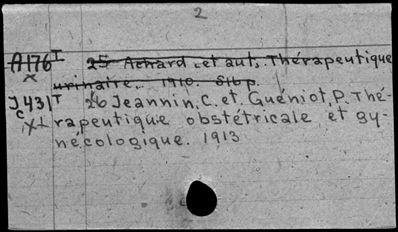 2
A176 I 25 Achard et aut. Thérapeutique
x urinaire. 1910. 816 p.
J431 T 26 Jeannin, C. et Guéniot, P. Thé-
c rapeutique obstétricale et gy-
nécologique. 1913